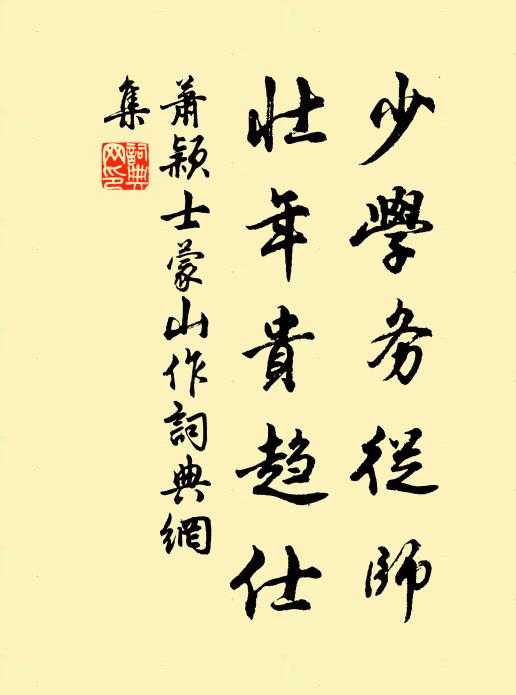 少學務從師
壯年貴趨仕
蕭潁士蒙山作詞典網
集
詞典
网印